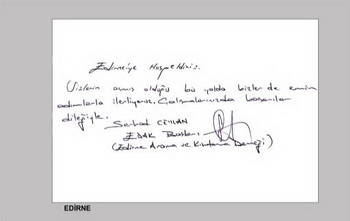 Edirne'ye Hoşgeldiniz.
Sizlerin açmış olduğu bu yolda bizler de emin
adımlarla ilerliyoruz. Çalışmalarınızda başarılar
dileğiyle.
Serhad CEYLAN
EDAK Başkanı
(Edirne Arama ve Kurtarma Derneği)
EDİRNE